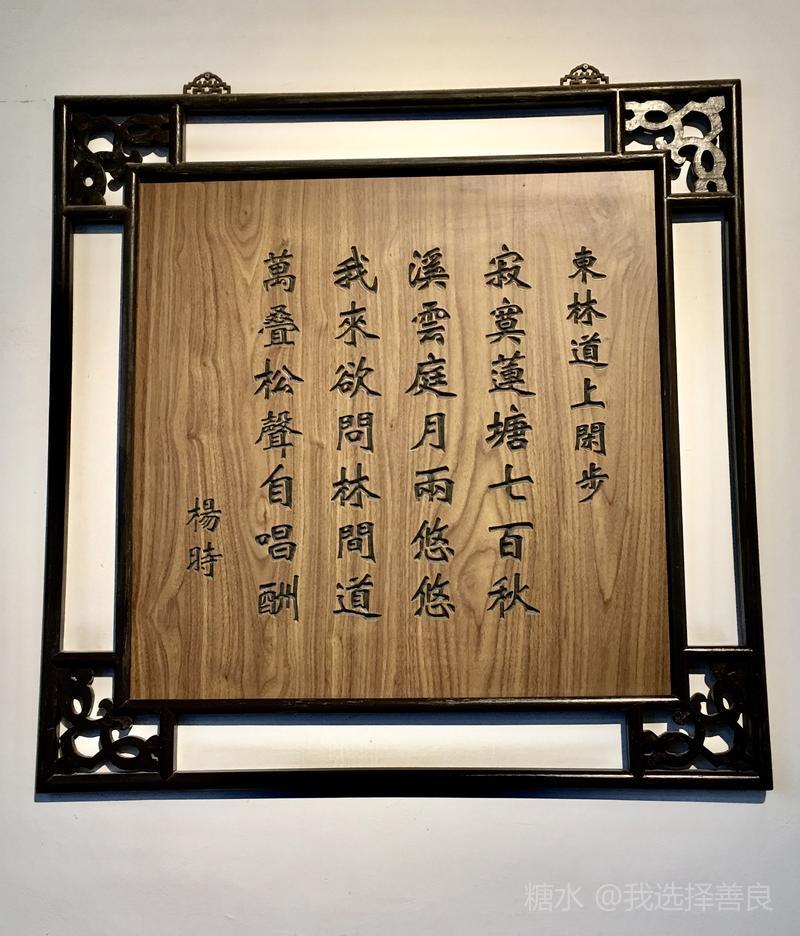 東林道上閑步
寂寞蓮塘七百秋
溪雲庭月兩悠悠
我來欲問林間道
萬叠松聲自唱酬
楊時
糖水 @我选择善良